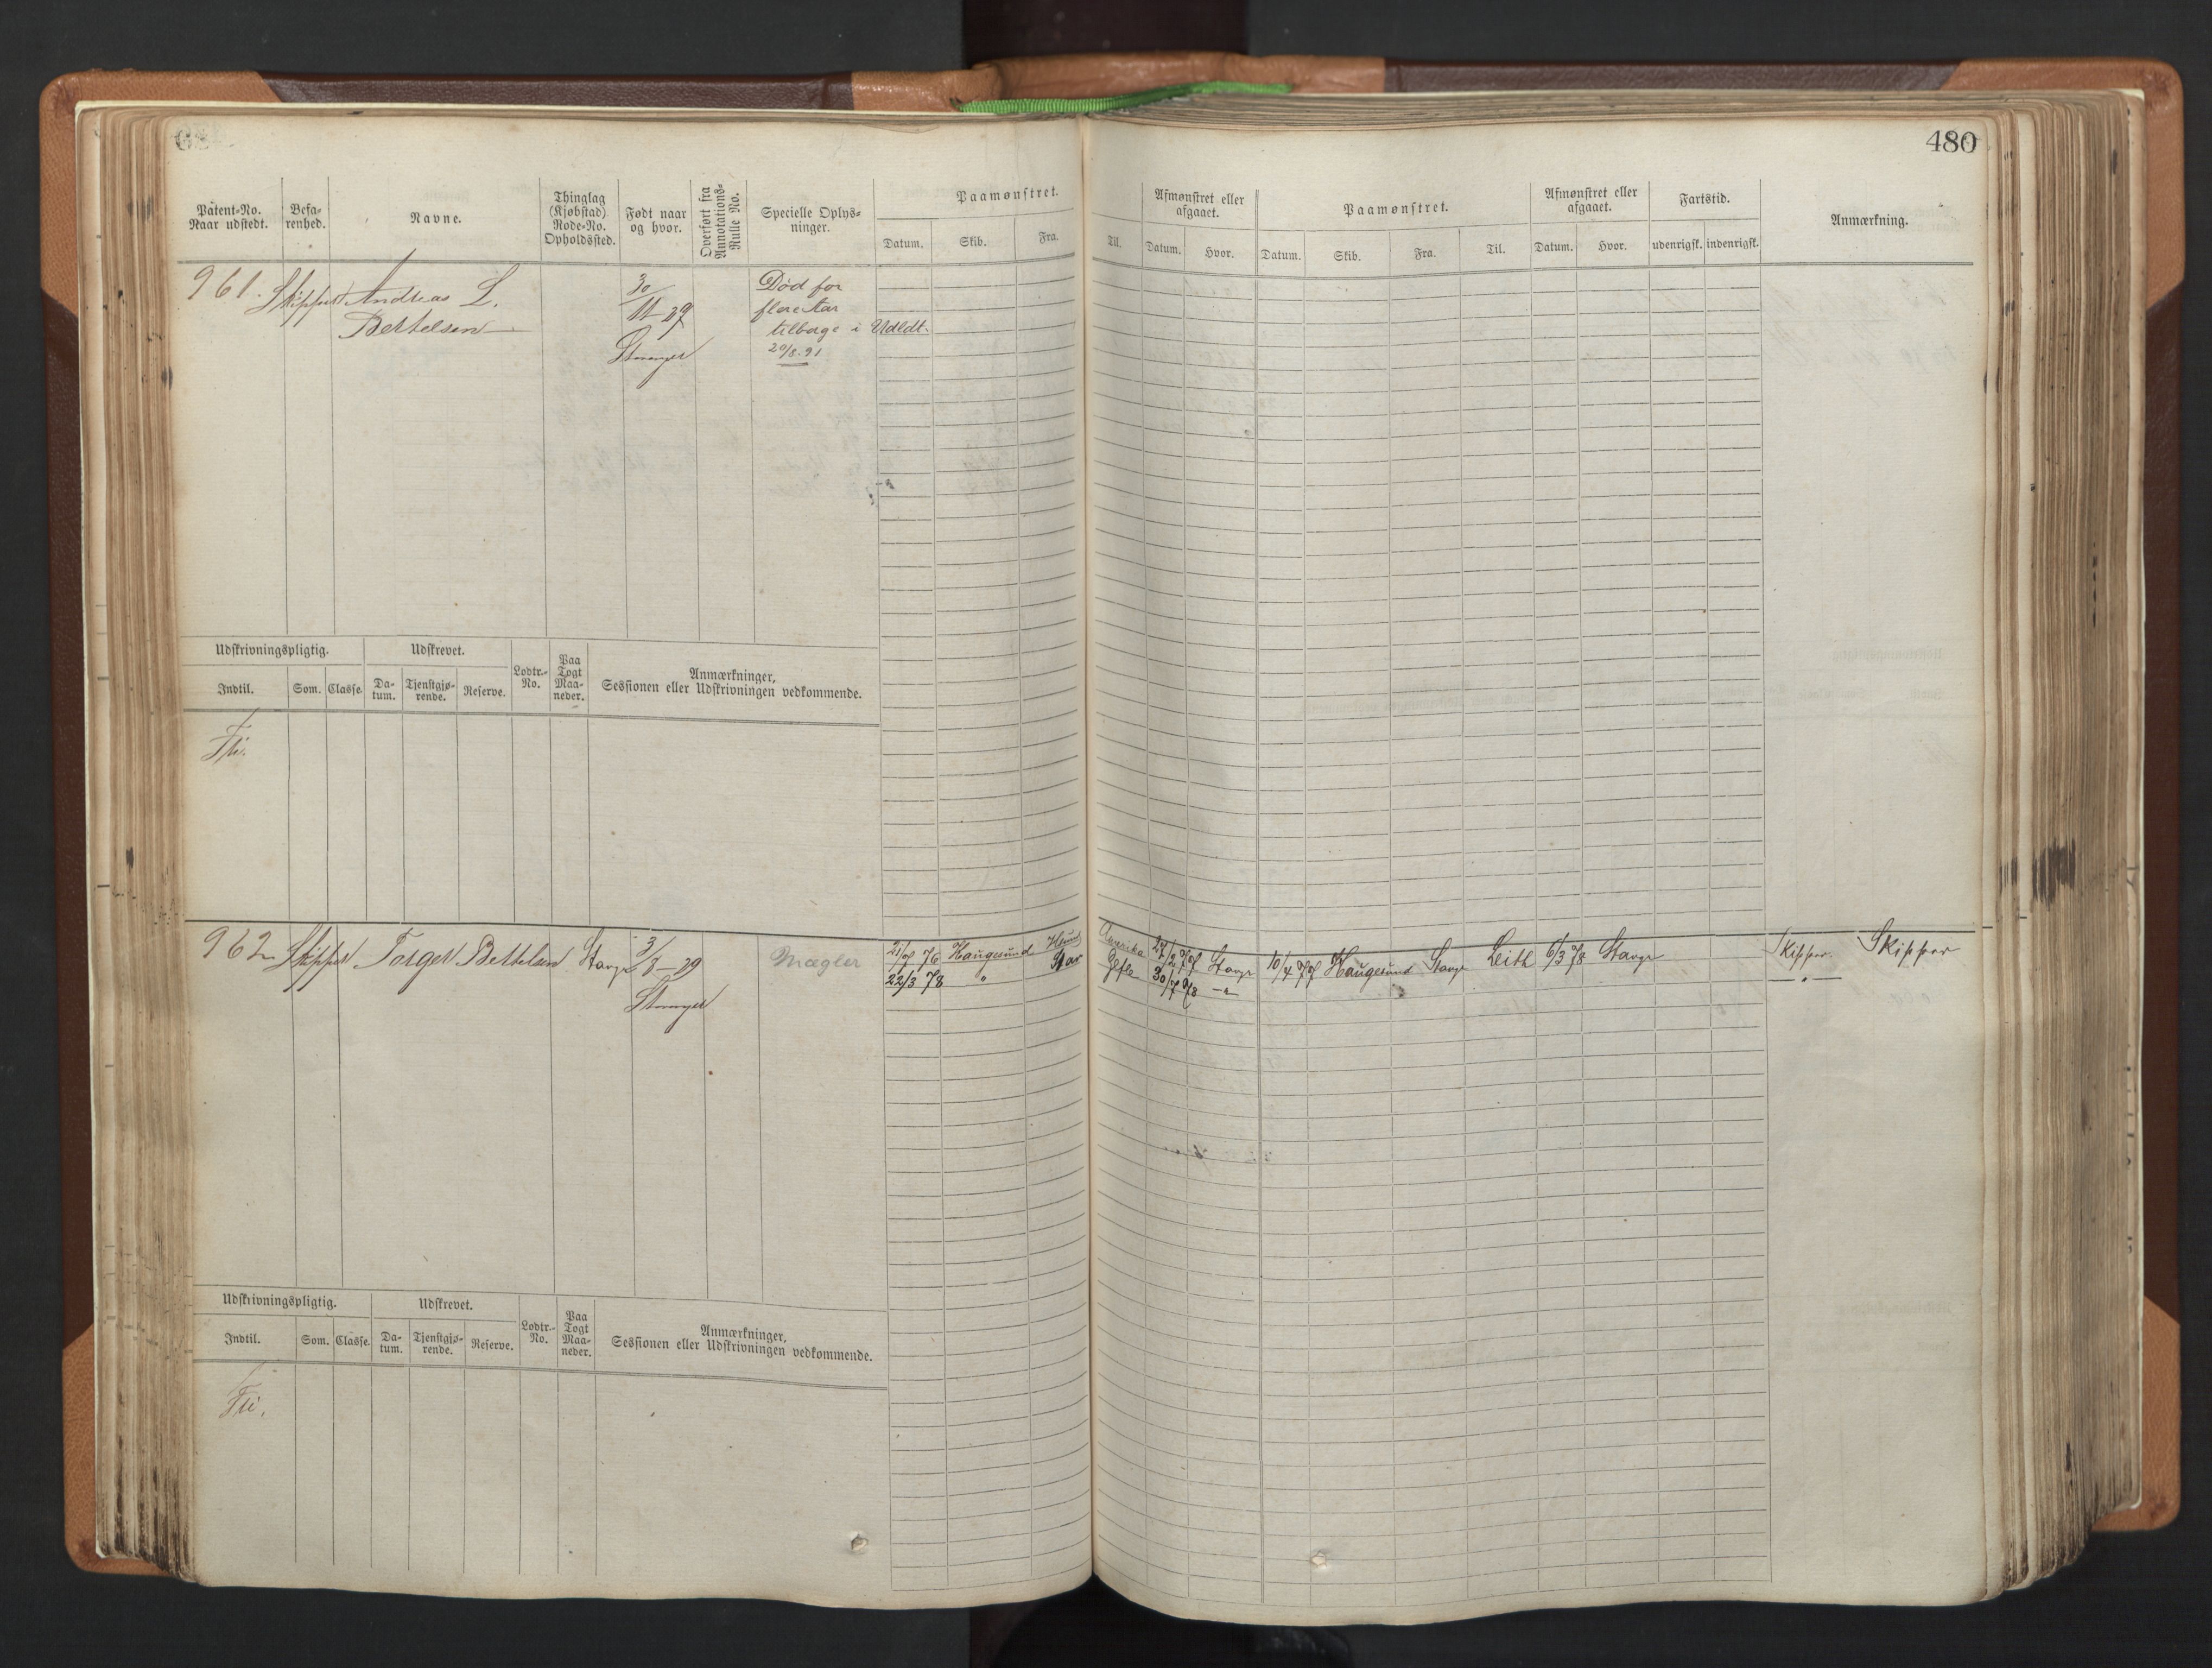 480
Patent-No.
Naar udstedt.
Befa-
renhed.
Navne.
Thinglag
(Kjøbstad)
Rode-No.
Opholdssted.
Født naar
og hvor.
Overført fra
Annotations-
Rulle No.
Specielle Oplys-
ninger.
Paamønstret.
Datum. Skib. Fra.
Til.
Afmønstret eller
afgaaet.
Datum. Hvor.
Paamønstret.
Datum. Skib. Fra. Til.
Afmønstret eller
afgaaet.
Datum. Hvor.
Fartstid.
udenrigsk. indenrigsk.
Anmærkning.
961. Skipper Andreas L.
Bertelsen
30/11 29
Stavanger
Død for
flere Aar
tilbage i Udldt.
20/8. 91
Udskrivningspligtig.
Indtil. Som. Classe.
Udskrevet.
Da-
tum.
Tjenstgjø-
rende.
Reserve.
Lodtr.-
No.
Paa
Togt
Maa-
neder.
Anmærkninger,
Sessionen eller Udskrivningen vedkommende.
Fri.
962 Skipper Torger Bertelsen Stavgr 3/8 - 29
Stavanger
Mægler
21/7 76 Haugesund Hsund Amerika 27/2 77 Stavgr 10/4 77 Haugesund Stavgr Leith 6/3 78 Stavgr Skipper. Skipper
22/3 78 " Stav Gefle 30/7 78 - " - - " -
Udskrivningspligtig.
Indtil. Som. Classe.
Udskrevet.
Da-
tum.
Tjenstgjø-
rende.
Reserve.
Lodtr.-
No.
Paa
Togt
Maa-
neder.
Anmærkninger,
Sessionen eller Udskrivningen vedkommende.
Fri.